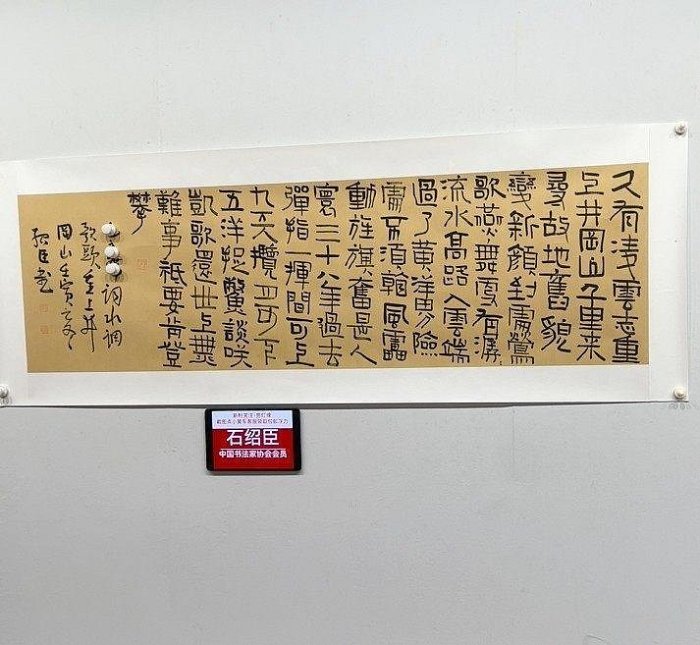 久有凌雲志重
上井岡山千里来
尋故地舊貌
變新顔到處鶯
歌燕舞更有潺
流水高路入雲端
過了黄洋界險
處不須看風雷
動旌旗奮是人
寰三十八年過去
彈指一揮間可上
九天攬月可下
五洋捉鱉談咲
凱歌還世上無
難事祇要肯登
攀
词水调
歌頭重上井
岡山壬寅之冬
绍臣书
石绍臣
中国书法家协会会员